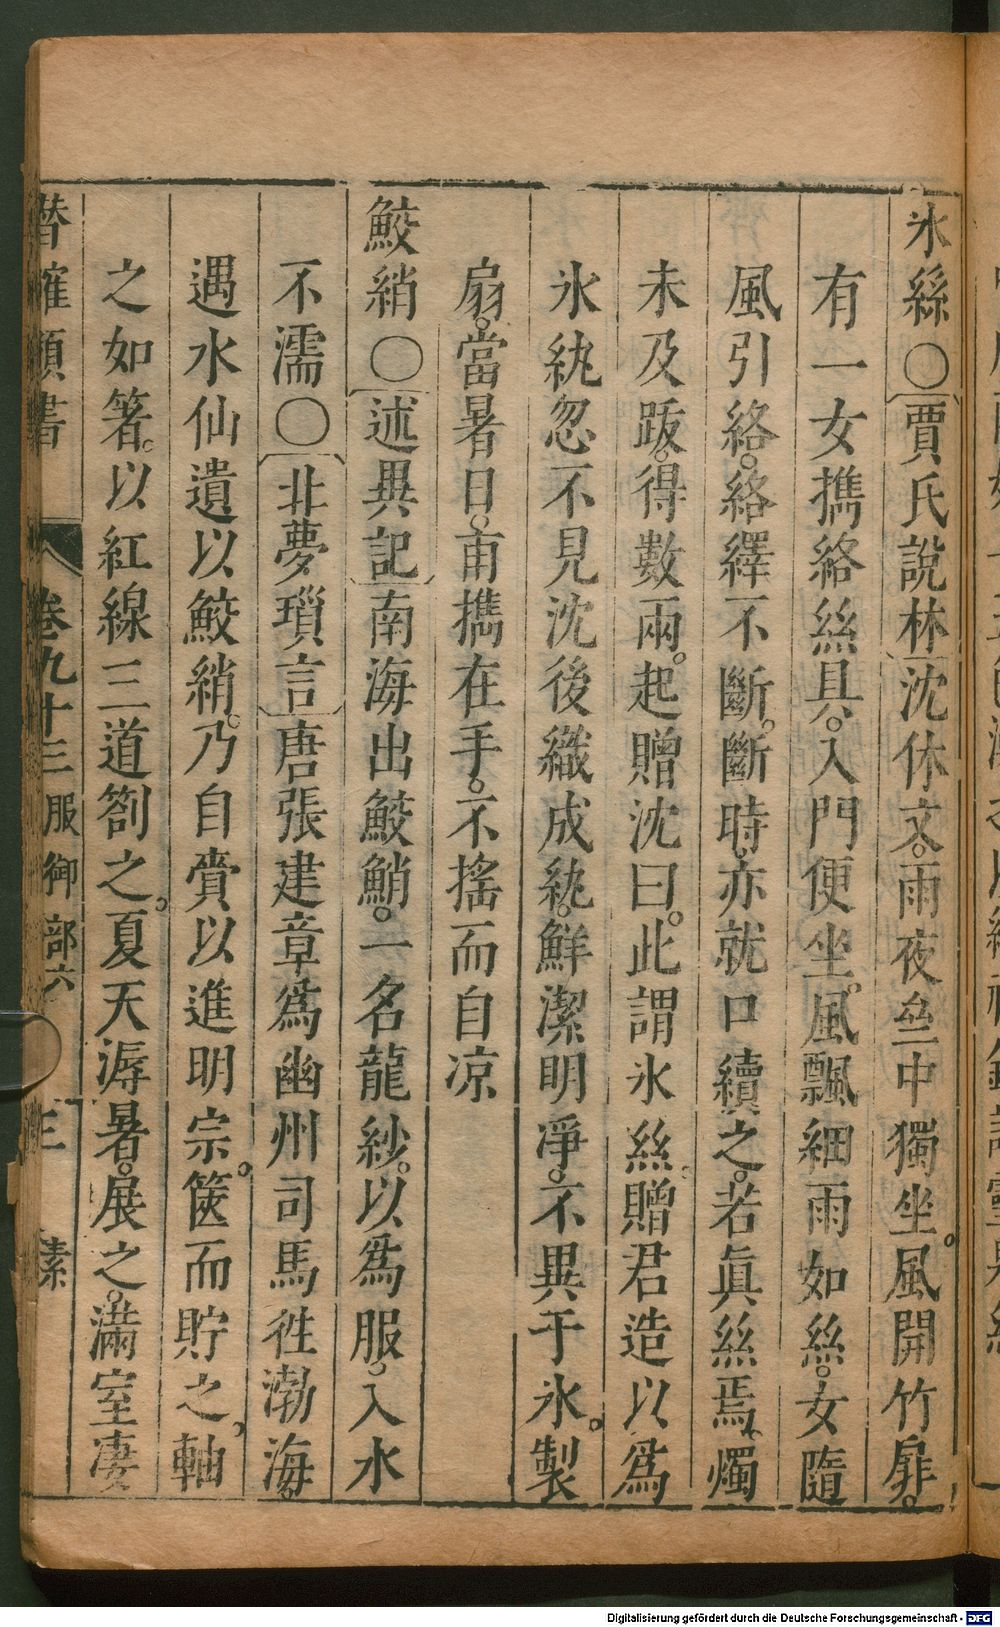 氷絲○賈氏說林沈休文。雨夜齋中獨坐。風開竹扉。
有一女擕絡絲具。入門便坐。風飄細雨如絲。女隨
風引絡。絡繹不斷。斷時亦就口續之。若眞絲焉。燭
未及跋。得數兩。起贈沈曰。此謂氷絲。贈君造以爲
氷紈忽不見沈後織成紈。鮮潔明凈。不異于氷。製
扇。當暑日。甫擕在手。不搖而自凉
鮫綃○述異記南海出鮫鮹。一名龍紗。以爲服。入水
不濡○北夢瑣言唐張建章爲幽州司馬徃渤海。
遇水仙遺以鮫綃。乃自賫以進明宗。篋而貯之。軸
之如箸。以紅線三道劄之。夏天溽暑。展之。滿室凄
潛確類書 卷九十三 服御部六 三 素
Digitalisierung gefördert durch die Deutsche Forschungsgemeinschaft - DFG